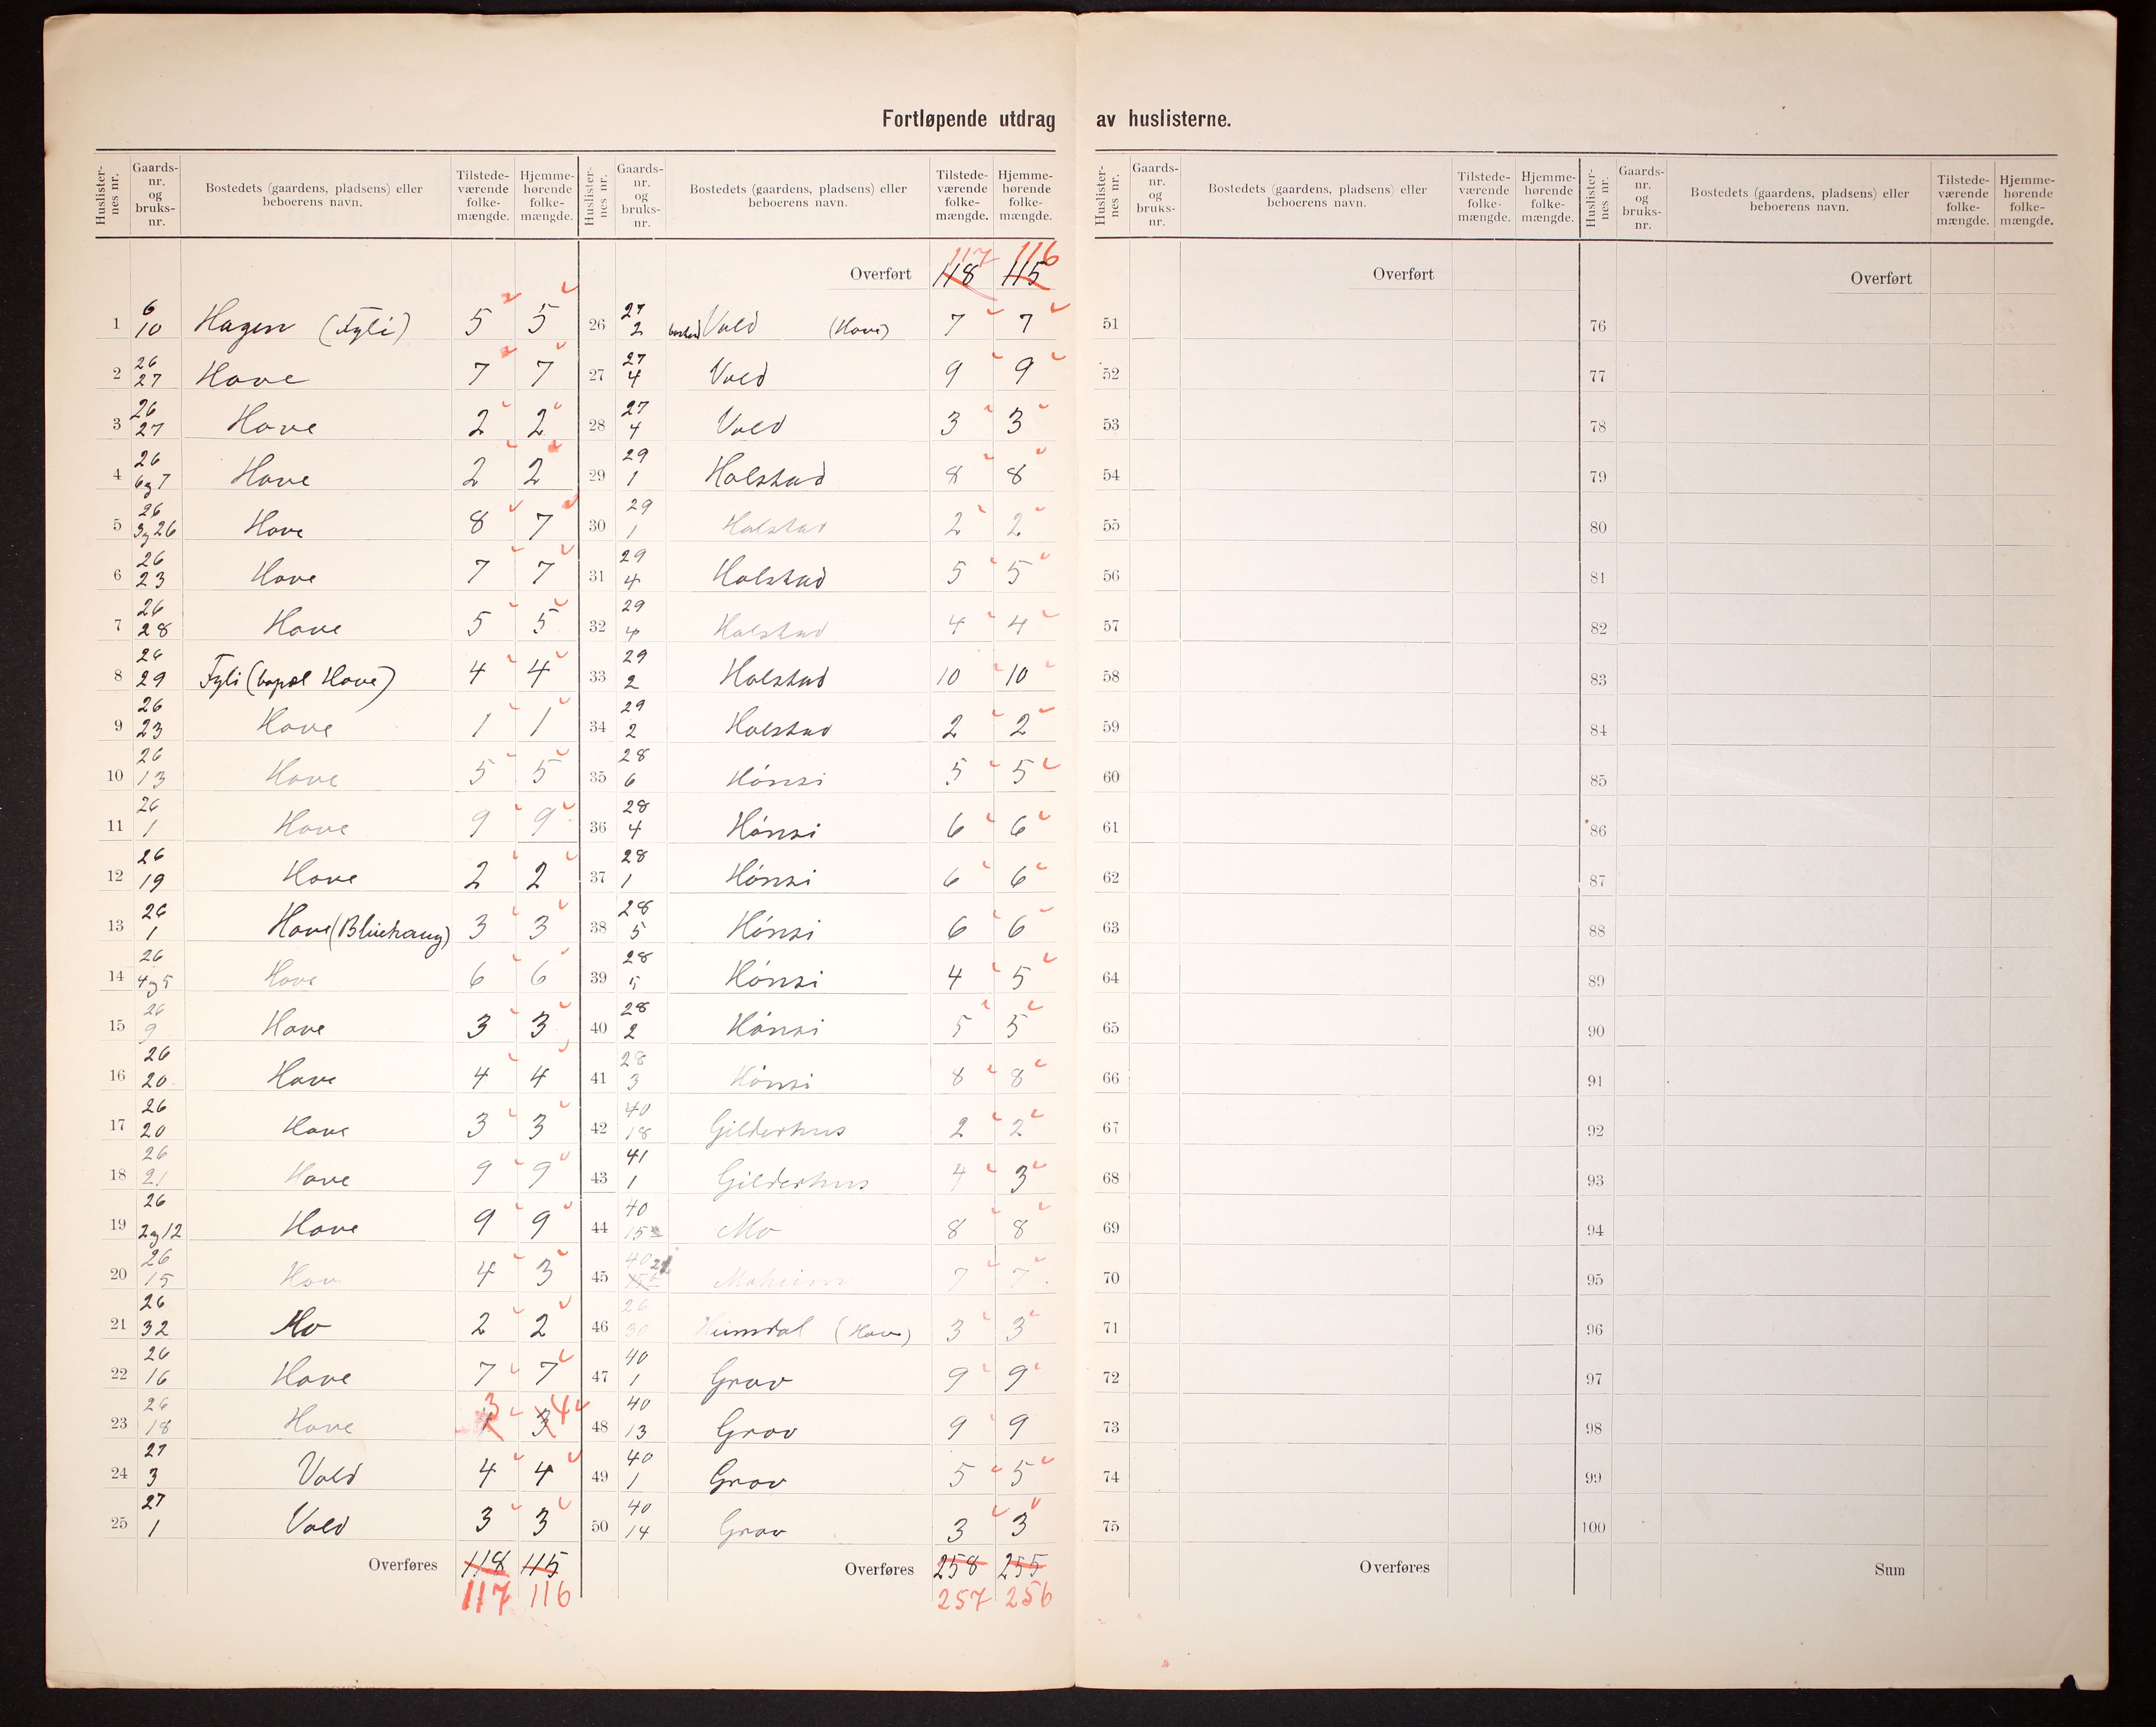 Fortløpende utdrag av huslisterne.
Huslister-nes nr. Gaards-nr. og bruks-nr. Bostedets (gaardens, pladsens) eller beboerens navn. Tilstede-værende folke-mængde. Hjemme-hørende folke-mængde.
1 6 10 Hagen (Fyli) 5 5
2 26 27 Hove 7 7
3 26 27 Hove 2 2
4 26 6g7 Hove 2 2
5 26 3g26 Hove 8 7
6 26 23 Hove 7 7
7 26 28 Hove 5 5
8 26 29 Fyli (bopæl Hove) 4 4
9 26 23 Hove 1 1
10 26 13 Hove 5 5
11 26 1 Hove 9 9
12 26 19 Hove 2 2
13 26 1 Hove 3 3
14 26 4g5 Hove 6 6
15 26 9 Hove 3 3
16 26 20 Hove 4 4
17 26 20 Hove 3 3
18 26 21 Hove 9 9
19 26 2g12 Hove 9 9
20 26 15 Hov 4 3
21 26 32 Mo 2 2
22 26 16 Hove 7 7
23 26 18 Hove 3 3 4
24 27 3 Vold 4 4
25 27 1 Vold 3 3
Overføres 118 115
117 116
Huslister-nes nr. Gaards-nr. og bruks-nr. Bostedets (gaardens, pladsens) eller beboerens navn. Tilstede-værende folke-mængde. Hjemme-hørende folke-mængde.
117 116
Overført 118 115
26 27 2 Vold (Hove) 7 7
27 27 4 Vold 9 9
28 27 4 Vold 3 3
29 29 1 Holstad 8 8
30 29 1 Holstad 2 2
31 29 4 Holstad 5 5
32 29 4 Holstad 4 4
33 29 2 Holstad 10 10
34 29 2 Holstad 2 2
35 28 6 Hønsi 5 5
36 28 4 Hønsi 6 6
37 28 1 Hønsi 6 6
38 28 5 Hønsi 6 6
39 28 5 Hønsi 4 5
40 28 2 Hønsi 5 5
41 28 3 Hønsi 8 8
42 40 18 Gilderhus 2 2
43 41 1 Gilderhus 4 3
44 40 15 Mo 8 8
45 40 21 Moheim 7 7
46 26 30 Heimdal (Hove) 3 3
47 40 1 Grov 9 9
48 40 13 Grov 9 9
49 40 1 Grov 5 5
50 40 14 Grov 3 3
Overføres 258 255
257 256
Huslister-nes nr. Gaards-nr. og bruks-nr. Bostedets (gaardens, pladsens) eller beboerens navn. Tilstede-værende folke-mængde. Hjemme-hørende folke-mængde.
Overført
51
52
53
54
55
56
57
58
59
60
61
62
63
64
65
66
67
68
69
70
71
72
73
74
75
Overføres
Huslister-nes nr. Gaards-nr. og bruks-nr. Bostedets (gaardens, pladsens) eller beboerens navn. Tilstede-værende folke-mængde. Hjemme-hørende folke-mængde.
Overført
76
77
78
79
80
81
82
83
84
85
86
87
88
89
90
91
92
93
94
95
96
97
98
99
100
Sum